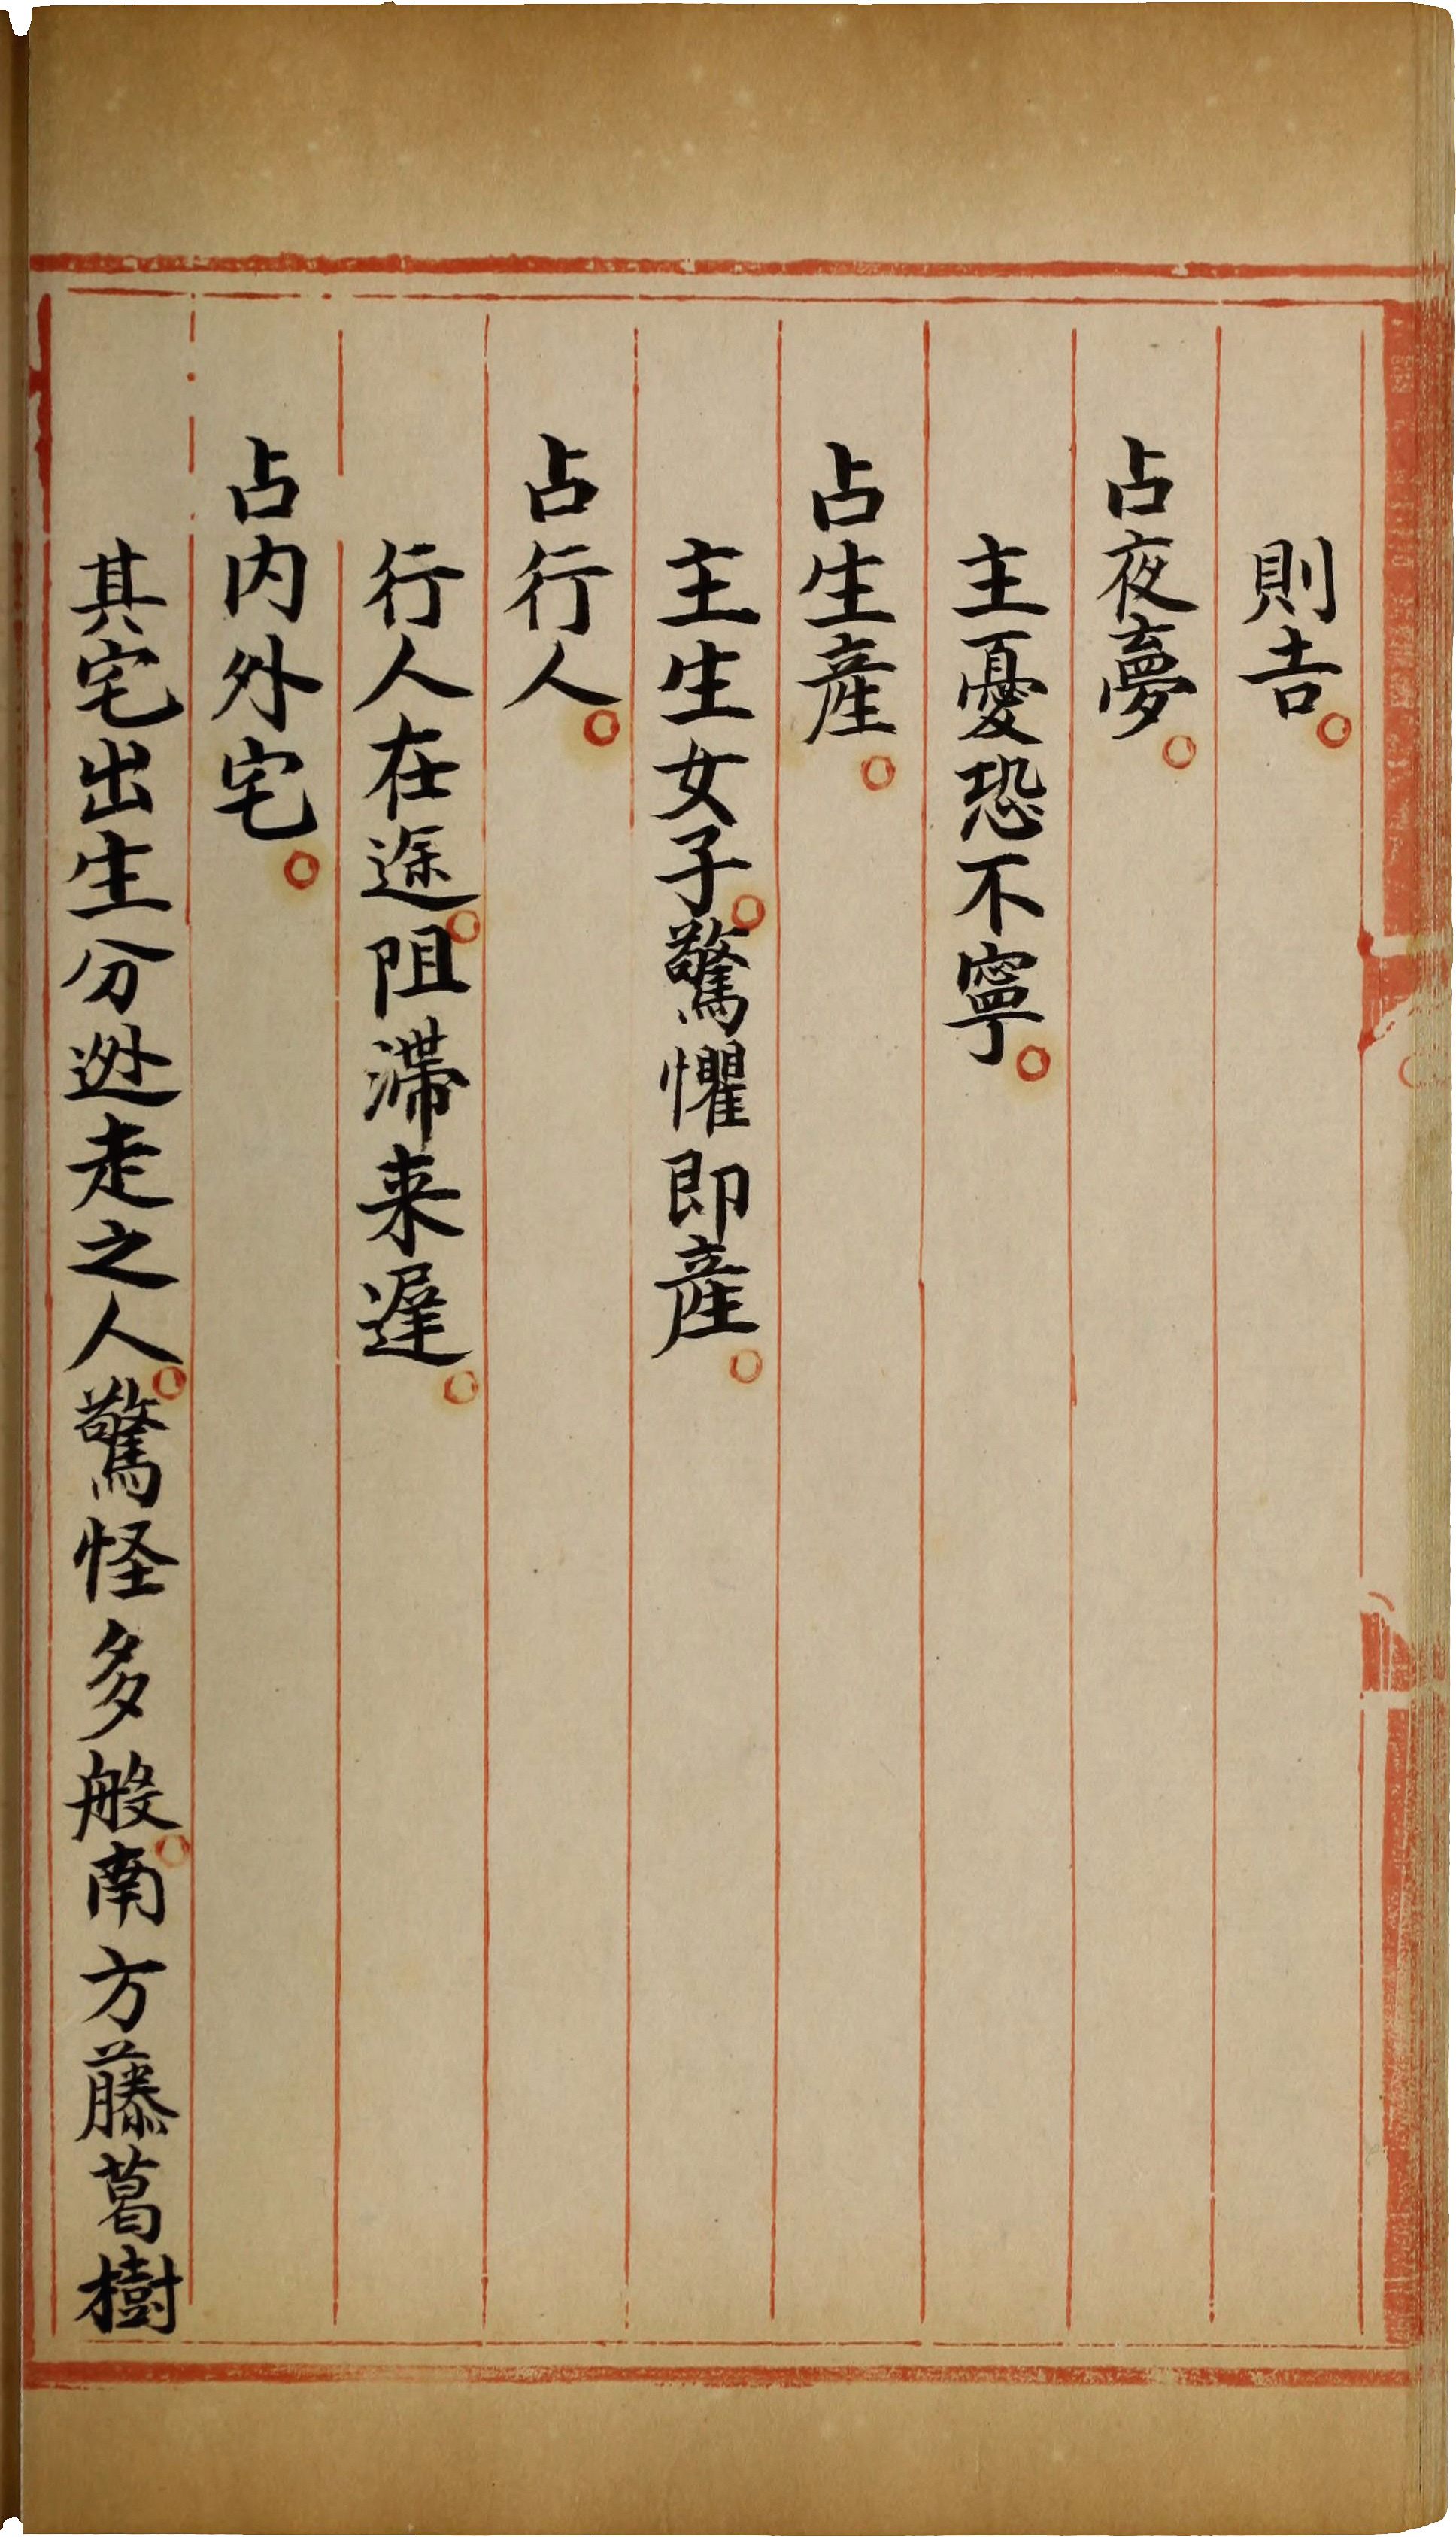 則吉。
占夜夢。
主憂恐不寧。
占生產。
主生女子。驚懼即產。
占行人。
行人在途。阻滯来遲。
占内外宅。
其宅出生分逃走之人。驚怪多般。南方藤葛樹